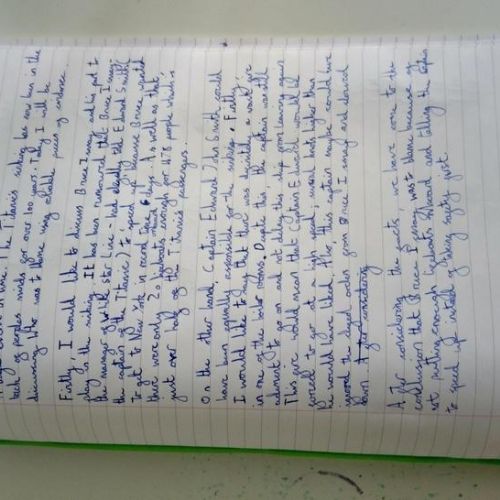 back of peoples minds for over 100 years. Today I will be
discussing who was to blame using reliable pieces of evidence.
Firstly, I would like to discuss Bruce Ismay and his part to
play in the sinking. It has been rumoured that Bruce Ismay -
the manager of White Star Line - had told Edward Smith
(the captain of the Titanic) to speed up because Bruce wanted
to get to New York in record time 6 days. As well as that
there were only 20 lifeboats enough for 1178 people which is
just over half of the Titanic's passengers.
On the other hand, Captain Edward John Smith could
have been equally responsible for the sinking. Firstly,
I would like to say that there was definitely a fire
in one of the boiler rooms. Despite this, the captain was still
adament to go on and not delay the ship from leaving.
This fire would mean that Captain Edward would be
forced to go at a high speed, unusual knots higher than
he would have liked. Also, this captain maybe could have
ignored the speed orders from Bruce Ismay and slowed
down.
After considering the facts, we have come to the
conclusion that Bruce Ismay was to blame because of
not putting enough lifeboats aboard and telling the captain
to speed up instead of taking safety first.